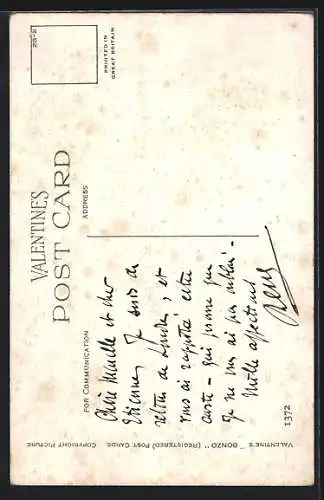 VALENTINES
POST CARD
FOR COMMUNICATION
ADDRESS
PRINTED IN
GREAT BRITAIN
Chère Marcelle et cher
Etienne, Je suis de
retour de Londres, et
vous ai rapporté cette
carte - qui prouve que
Je ne vous ai pas oublié -
Mille affections
1372
VALENTINE'S "BONZO" (REGISTERED) POST CARDS COPYRIGHT PICTURE